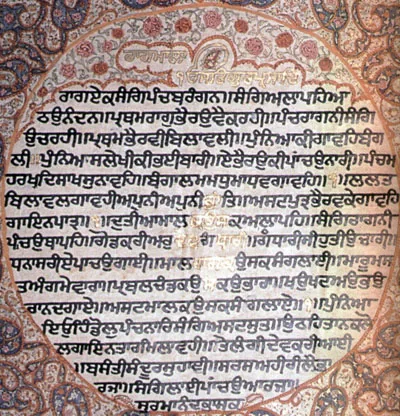 ਰਾਗਮਾਲਾ
ਰਾਗਏਕਸੰਗਿਪੰਚਬਰੰਗਨ॥ਸੰਗਿਅਲਾਪਹਿਆ
ਠਉਨੰਦਨ॥ਪ੍ਰਥਮਰਾਗੁਭੈਰਉਵੈਕਰਹੀ॥ਪੰਚਰਾਗਨੀਸੰਗਿ
ਉਚਰਹੀ॥ਪ੍ਰਥਮਭੈਰਵੀਬਿਲਾਵਲੀ॥ਪੁੰਨਿਆਕੀਗਾਵਹਿਬੰਗ
ਲੀ॥ਪੁੰਨਿਅਸਲੇਖੀਕੀਭਈਬਾਰੀ॥ਏਭੈਰਉਕੀਪਾਚਉਨਾਰੀ॥ਪੰਚਮ
ਹਰਖਦਿਸਾਖਸੁਨਾਵਹਿ॥ਬੰਗਾਲਮਮਧੁਮਾਧਵਗਾਵਹਿ॥੧॥ਲਲਤ
ਬਿਲਾਵਲਗਾਵਹੀਅਪੁਨੀਅਪੁਨੀਭਾਤਿ॥ਅਸਟਪੁਤ੍ਰਭੈਰਵਕੇਗਾਵਹਿ
ਗਾਇਨਪਾਤ੍ਰ॥੧॥ਦੁਤੀਆਮਾਲਕਉਸਕਆਲਾਪਹਿ॥ਸੰਗਿਰਾਗਨੀ
ਪਾਚਉਥਾਪਹਿ॥ਗੋਡਕਰੀਅਰੁਦੇਵਗੰਧਾਰੀ॥ਗੰਧਾਰੀਸੀਹੁਤੀਉਚਾਰੀ॥
ਧਨਾਸਰੀਏਪਾਚਉਗਾਈ॥ਮਾਲਰਾਗਕਉਸਕਸੰਗਿਲਾਈ॥ਮਾਰੂਮਸ
ਤਅੰਗਮੇਵਾਰਾ॥ਪ੍ਰਬਲਚੰਡਕਉਸਕਉਭਾਰਾ॥ਖਉਖਟਅਉਭਉ
ਰਾਨਦਗਾਏ॥ਅਸਟਮਾਲਕਉਸਕਸੰਗਿਲਾਏ॥੧॥ਪੁੰਨਿਆ
ਇਓਹਿੰਡੋਲਪੰਚਨਾਰਿਸੰਗਿਅਸਟਸੁਤ॥ਉਠਹਿਤਾਨਕਲੋ
ਲਗਾਇਨਤਾਰਮਿਲਾਵਹੀ॥ਤੇਲੰਗੀਦੇਵਕਰੀਆਈ
॥ਬਸੰਤੀਸੰਦੂਰਸੁਹਾਈ॥ਸਰਸਅਹੀਰੀਲੈਭਾ
ਰਜਾ॥ਸੰਗਿਲਾਈਪਾਂਚਉਆਰਜਾ॥
ਸੁਰਮਾਨੰਦਭਾਸਕਰ